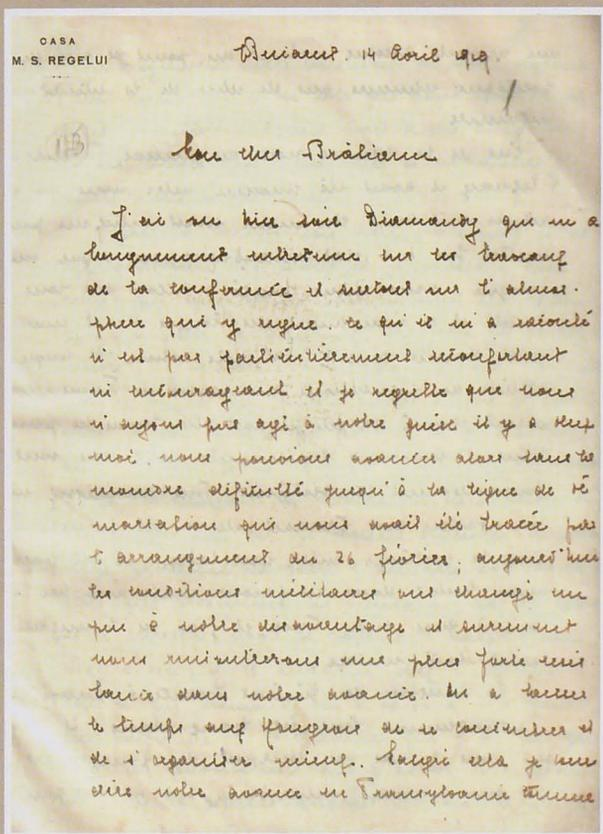 CASA
M. S. REGELUI
14 Avril 1919.
Mon cher Brătianu
J'ai vu hier soir Diamandy qui m'a
longuement entretenu sur les travaux
de la conférence et surtout sur l'atmos-
phère qui y règne. Ce qu'il m'a raconté
n'est pas particulièrement réconfortant
ni encourageant et je regrette que nous
n'ayons pas agi à notre guise il y a deux
moi. nous pouvions avancer alors sans la
moindre difficulté jusqu'à la ligne de dé
marcation qui nous avait été tracée par
l'arrangement du 26 février; aujourd'hui
les conditions militaires ont changé un
peu à notre désavantage et surement
nous rencontrerons une plus forte résis
tance dans notre avance. On a laissé
le temps aux Hongrois de se concentrer et
de s'organiser mieux. Malgré cela je con
dère notre avance en Transylvanie comme